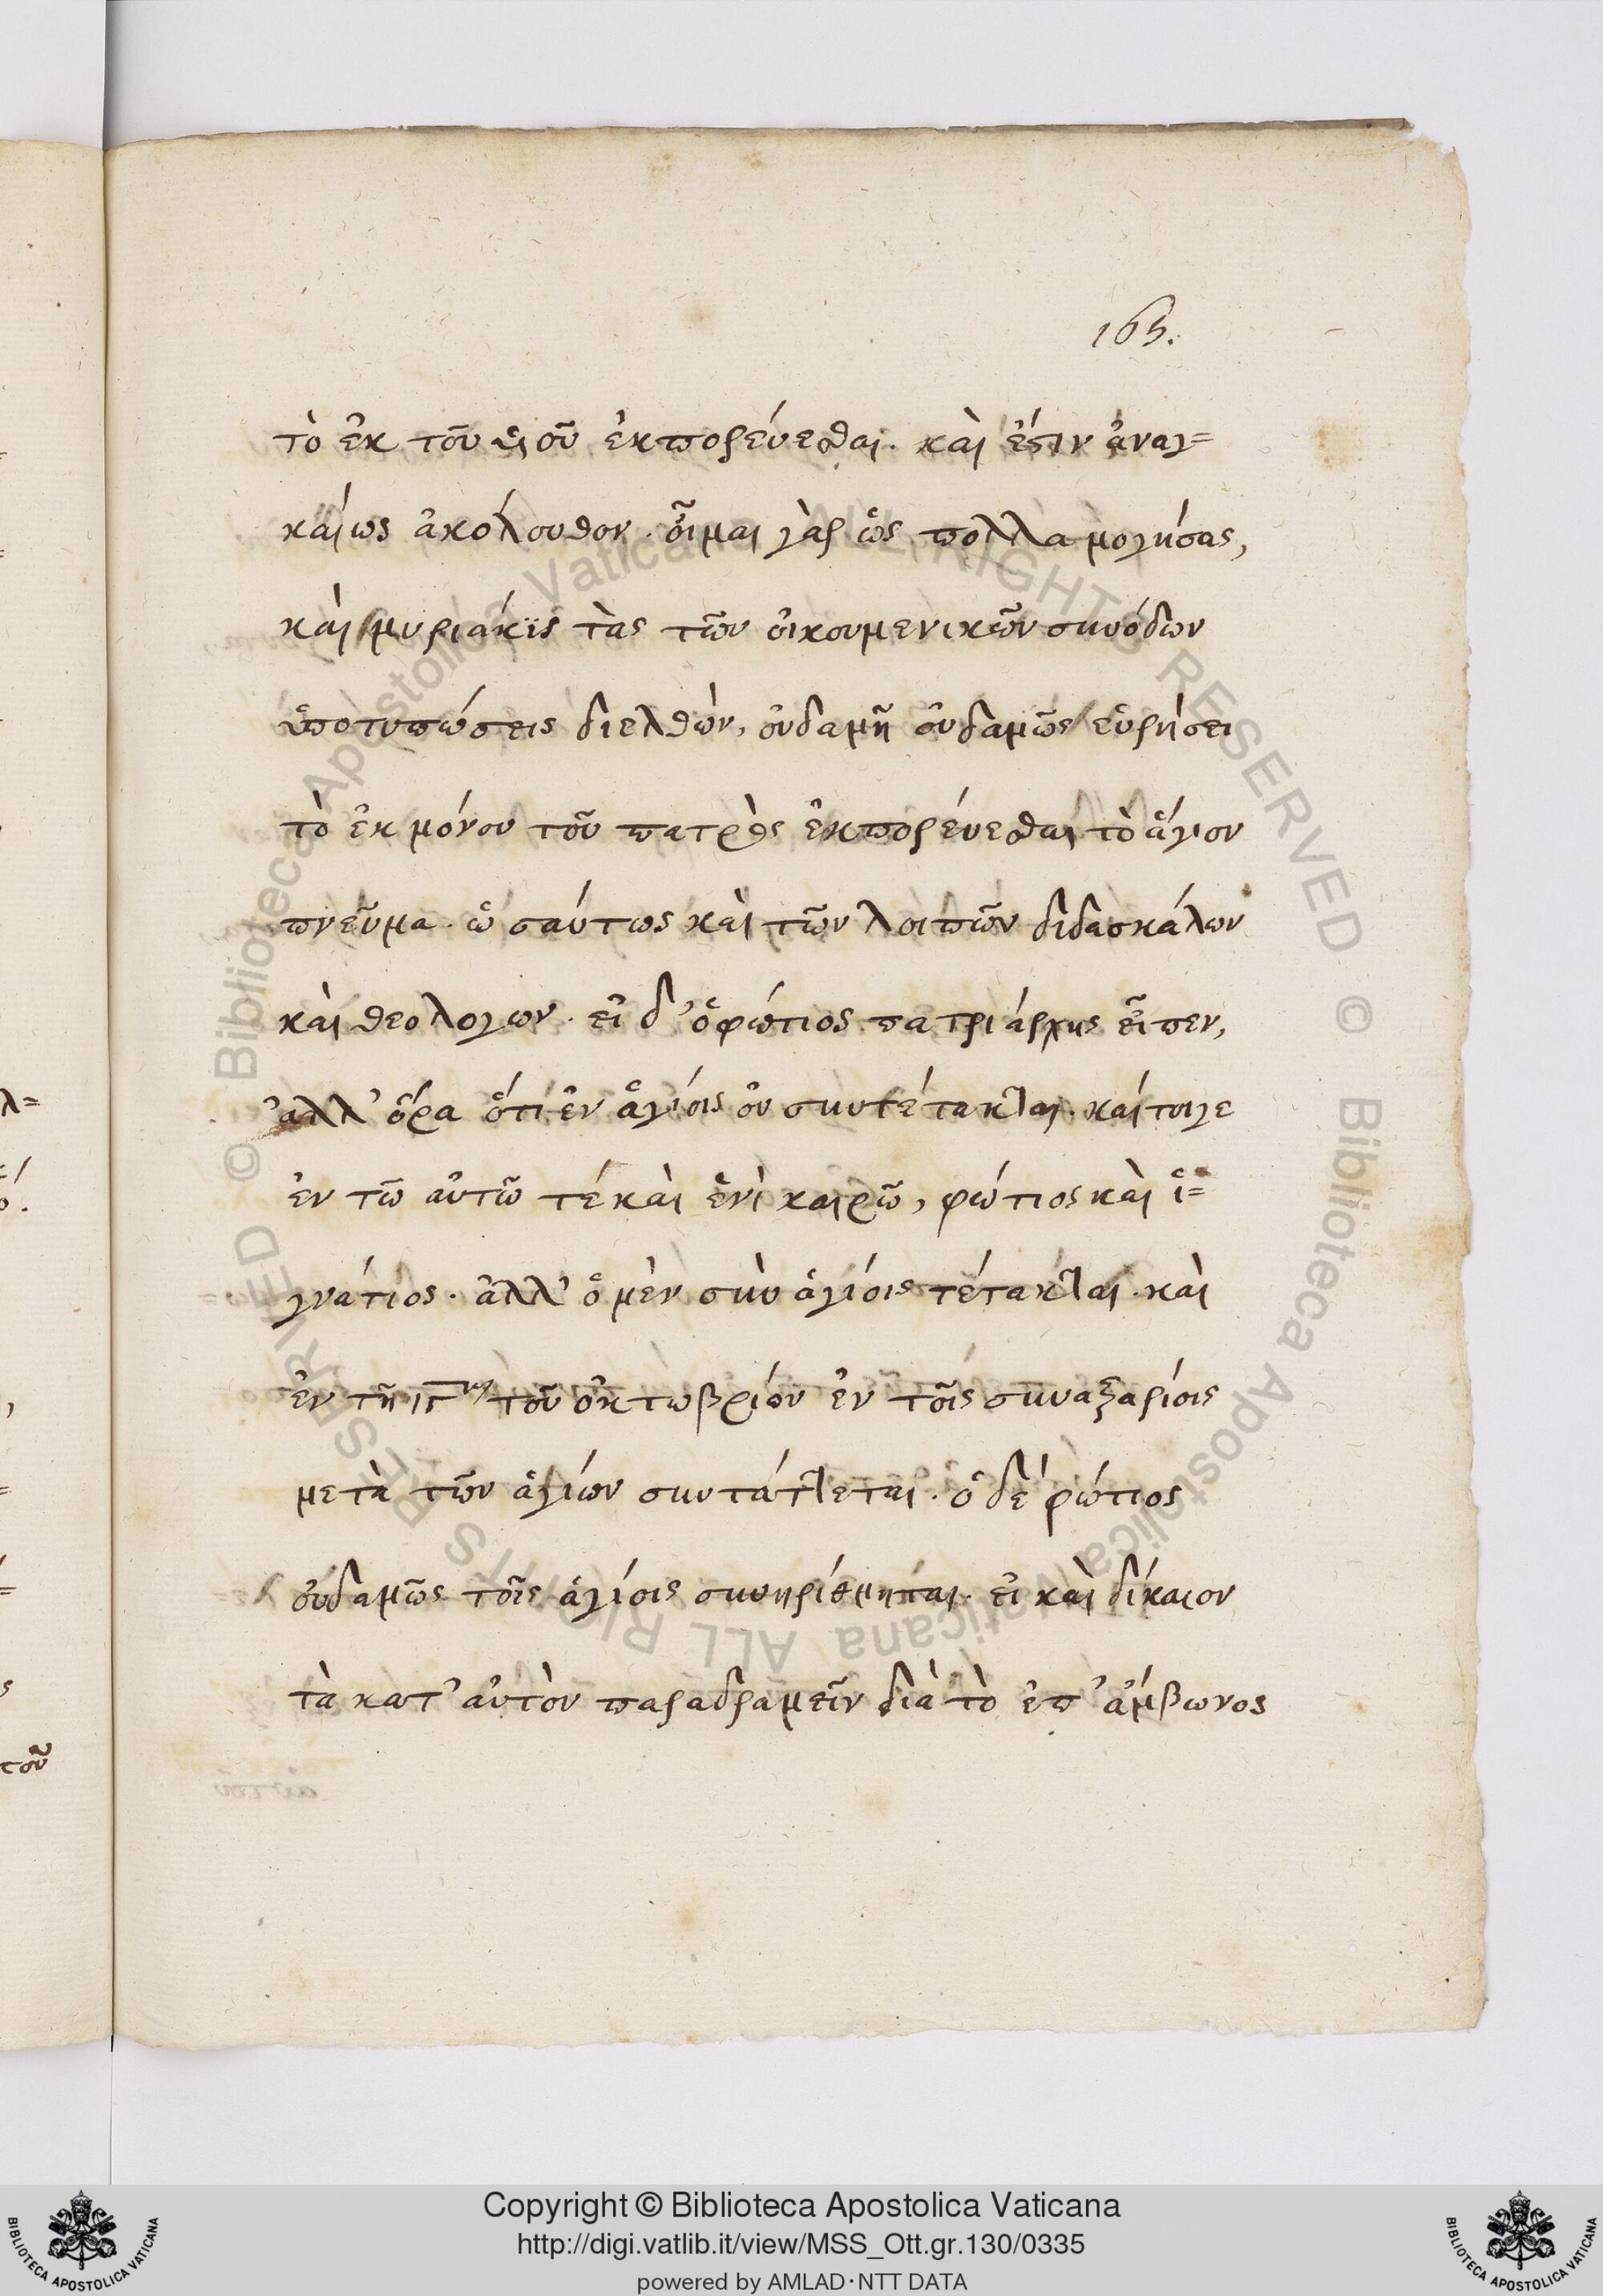 165.
τὸ ἐκ τοῦ υἱοῦ ἐκπορεύεσθαι. καὶ ἔστιν ἀναγ=
καίως ἀκόλουθον. οἶμαι γὰρ ὡς πολλα μογήσας,
καὶ μυριάκϊς τὰς τῶν οἰκουμενικῶν συνόδων
ὑποτυπώσεις διελθών, οὐδαμῆ οὐδαμῶς εὑρήσει
τὸ ἐκ μόνου τοῦ πατρὸς ἐκπορεύεσθαι τὸ ἅγιον
πνεῦμα. ὡσαύτως καὶ τῶν λοιπῶν διδασκάλων
καὶ θεολογων. εἰ δ' ὁ φώτιος πατριάρχης εἶπεν,
ἀλλ' ὅρα ὅτι ἐν ἁγίοις οὐ συντέτακται. καίτοιγε
ἐν τῶ αὐτῶ τέ καὶ ἑνὶ καιρῶ, φώτιος καὶ ἰ=
γνάτιος. ἀλλ' ὁ μὲν σὺν ἁγίοις τέτακται. καὶ
ἐν τῆ τοῦ ὀκτωβρίου ἐν τοῖς συναξαρίοις
μετὰ τῶν ἁγίων συντάττεται. ὁ δὲ φώτιος
οὐδαμῶς τοῖς ἁγίοις συνηρίθμηται. εἰ καὶ δίκαιον
τὰ κατ' αὐτὸν παραδραμεῖν διὰ τὸ ἐπ' ἄμβωνος
τοῦ
Copyright © Biblioteca Apostolica Vaticana
http://digi.vatlib.it/view/MSS_Ott.gr.130/0335
powered by AMLAD·NTT DATA
BIBLIOTECA APOSTOLICA VATICANA
BIBLIOTECA APOSTOLICA VATICANA
© Biblioteca Apostolica Vaticana ALL RIGHTS RESERVED
© Biblioteca Apostolica Vaticana ALL RIGHTS RESERVED